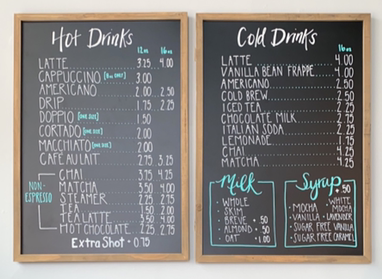 Hot Drinks
12oz 16oz
LATTE 3.25 4.00
CAPPUCCINO [8oz ONLY] 3.00
AMERICANO 2.00 2.50
DRIP 1.75 2.25
DOPPIO [ONE SIZE] 1.50
CORTADO [ONE SIZE] 2.00
MACCHIATO [ONE SIZE] 2.00
CAFÉ AU LAIT 2.75 3.25
NON-ESPRESSO
CHAI 3.75 4.25
MATCHA 3.50 4.00
STEAMER 2.25 2.75
TEA 1.50 2.00
TEA LATTE 3.50 4.00
HOT CHOCOLATE 2.25 2.75
Extra Shot • 0.75
Cold Drinks
16oz
LATTE 4.00
VANILLA BEAN FRAPPE 4.00
AMERICANO 2.50
COLD BREW 2.50
ICED TEA 2.25
CHOCOLATE MILK 2.75
ITALIAN SODA 2.25
LEMONADE 1.75
CHAI 4.25
MATCHA 4.25
Milk
• WHOLE
• SKIM
• BREVE • .50
• ALMOND • .50
• OAT • 1.00
Syrup • .50
• MOCHA • WHITE MOCHA
• VANILLA • LAVENDER
• SUGAR FREE VANILLA
• SUGAR FREE CARAMEL